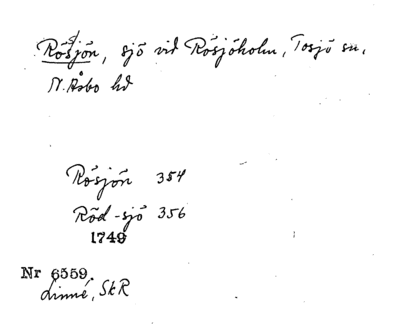 Rösjön, sjö vid Rösjöholm, Tosjö sn,
N. Åsbo hd
Rösjön 354
Röd-sjö 356
1749
Nr 6559.
Linné, SkR